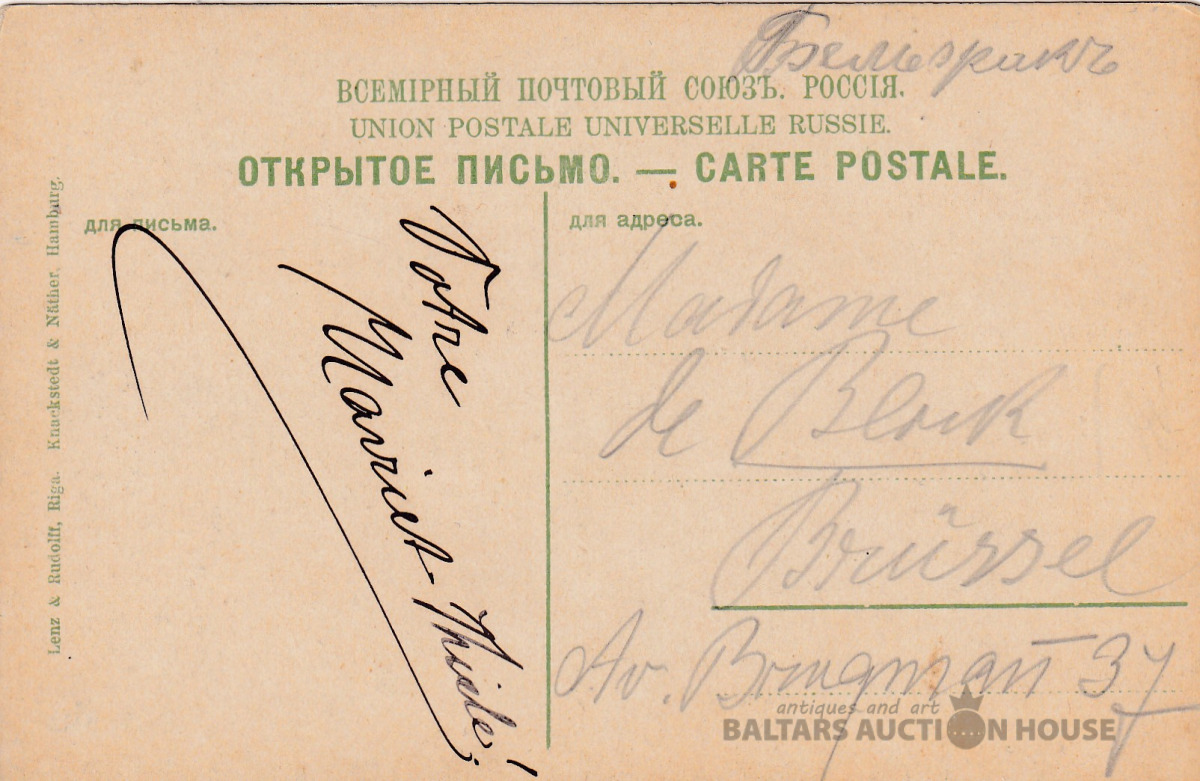 ВСЕМІРНЫЙ ПОЧТОВЫЙ СОЮЗЪ. РОССІЯ.
UNION POSTALE UNIVERSELLE RUSSIE.
ОТКРЫТОЕ ПИСЬМО. — CARTE POSTALE.
для письма.
для адреса.
Votre
Mariet-Thiele!
Madame
de Block
Brüssel
Av. Brugmañ 37
Lenz & Rudolff, Riga. Knackstedt & Näther, Hamburg.
antiques and art
BALTARS AUCTION HOUSE